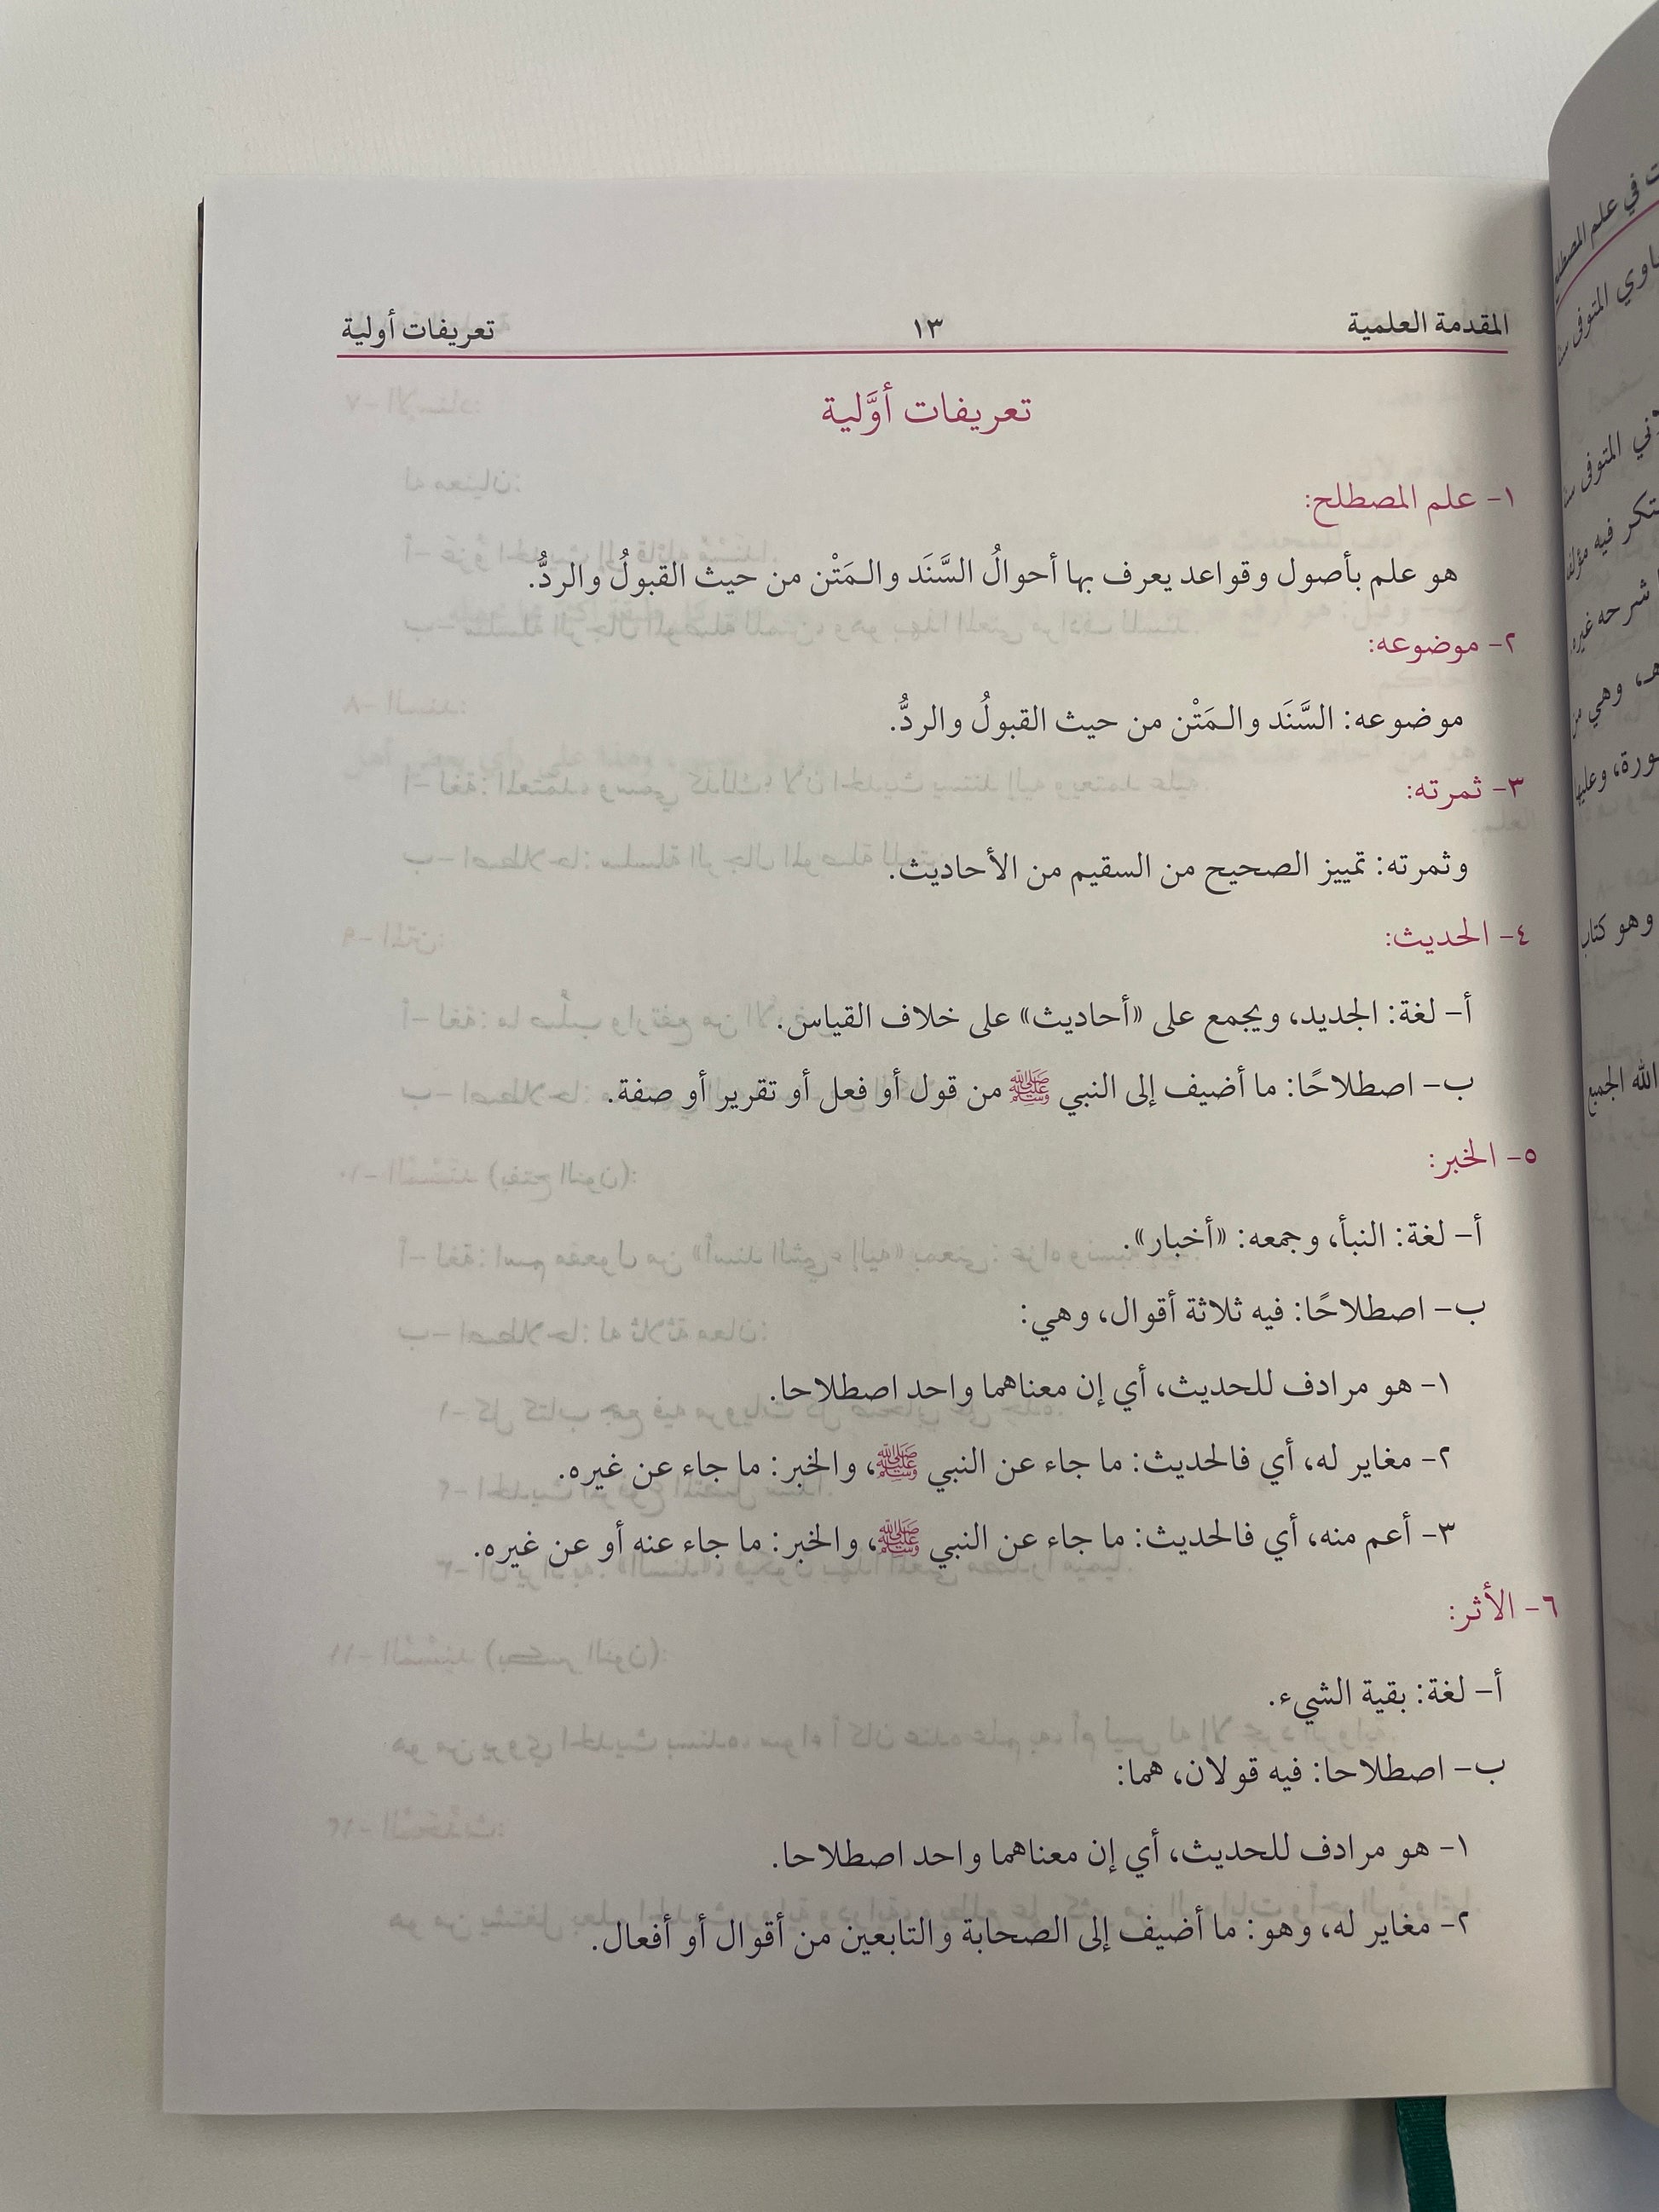 المقدمة العلمية ١٣ تعريفات أولية
تعريفات أوَّلية
١- علم المصطلح:
هو علم بأصول وقواعد يعرف بها أحوالُ السَّنَد والـمَتْن من حيث القبولُ والردُّ.
٢- موضوعه:
موضوعه: السَّنَد والـمَتْن من حيث القبولُ والردُّ.
٣- ثمرته:
وثمرته: تمييز الصحيح من السقيم من الأحاديث.
٤- الحديث:
أ- لغة: الجديد، ويجمع على «أحاديث» على خلاف القياس.
ب- اصطلاحًا: ما أضيف إلى النبي ﷺ من قول أو فعل أو تقرير أو صفة.
٥- الخبر:
أ- لغة: النبأ، وجمعه: «أخبار».
ب- اصطلاحًا: فيه ثلاثة أقوال، وهي:
١- هو مرادف للحديث، أي إن معناهما واحد اصطلاحا.
٢- مغاير له، أي فالحديث: ما جاء عن النبي ﷺ، والخبر: ما جاء عن غيره.
٣- أعم منه، أي فالحديث: ما جاء عن النبي ﷺ، والخبر: ما جاء عنه أو عن غيره.
٦- الأثر:
أ- لغة: بقية الشيء.
ب- اصطلاحا: فيه قولان، هما:
١- هو مرادف للحديث، أي إن معناهما واحد اصطلاحا.
٢- مغاير له، وهو: ما أضيف إلى الصحابة والتابعين من أقوال أو أفعال.
في علم
المتوفى
المتوفى
فيه
شرحه غيره
وهي
وهو كتاب
الله الجميع